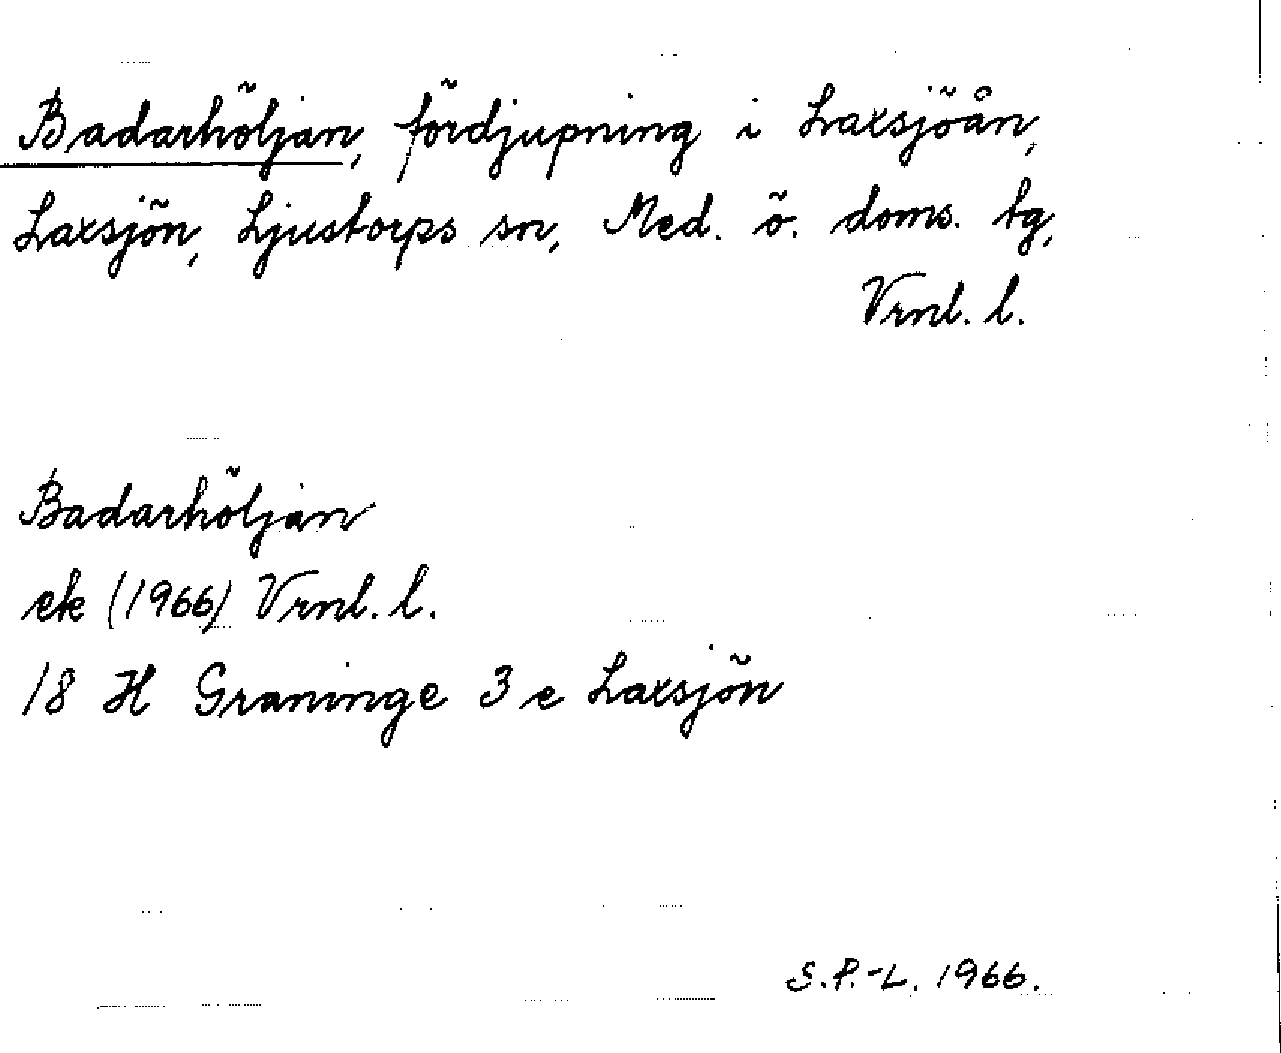 Badarhöljan, fördjupning i Laxsjöån,
Laxsjön, Ljustorps sn, Med. ö. doms. tg,
Vrnl. l.
Badarhöljan
ek (1966) Vrnl. l.
18 H Graninge 3 e Laxsjön
S.P.-L. 1966.